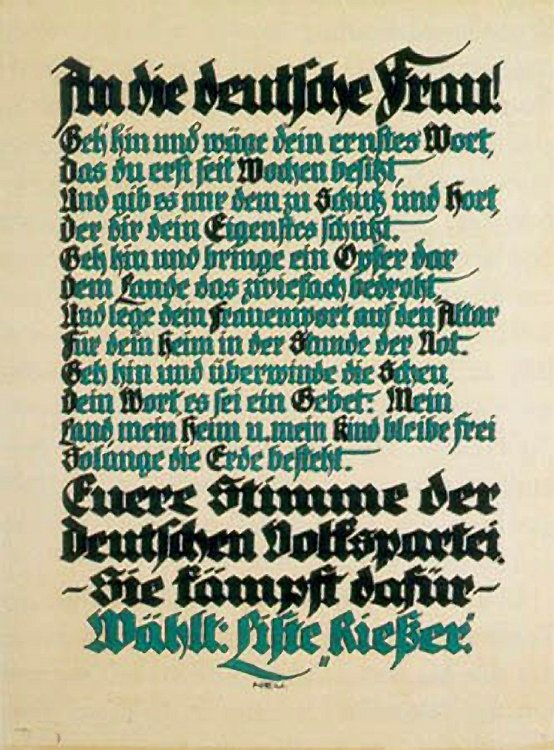 An die deutsche Frau!
Geh hin und wäge dein ernstes Wort,
Das du erst seit Wochen besitzt
Und gib es nur dem zu Schutz und Hort,
Der dir dein Eigenstes schützt.
Geh hin und bringe ein Opfer dar
Dem Lande das zwiefach bedroht
Und lege dein Frauenwort auf den Altar
Für dein Heim in der Stunde der Not.
Geh hin und überwinde die Scheu,
Dein Wort, es sei ein Gebet: Mein
Land mein Heim u. mein Kind bleibe frei
Solange die Erde besteht.
Euere Stimme der
deutschen Volkspartei.
– Sie kämpft dafür –
Wählt: Liste „Rießer."
NEU.